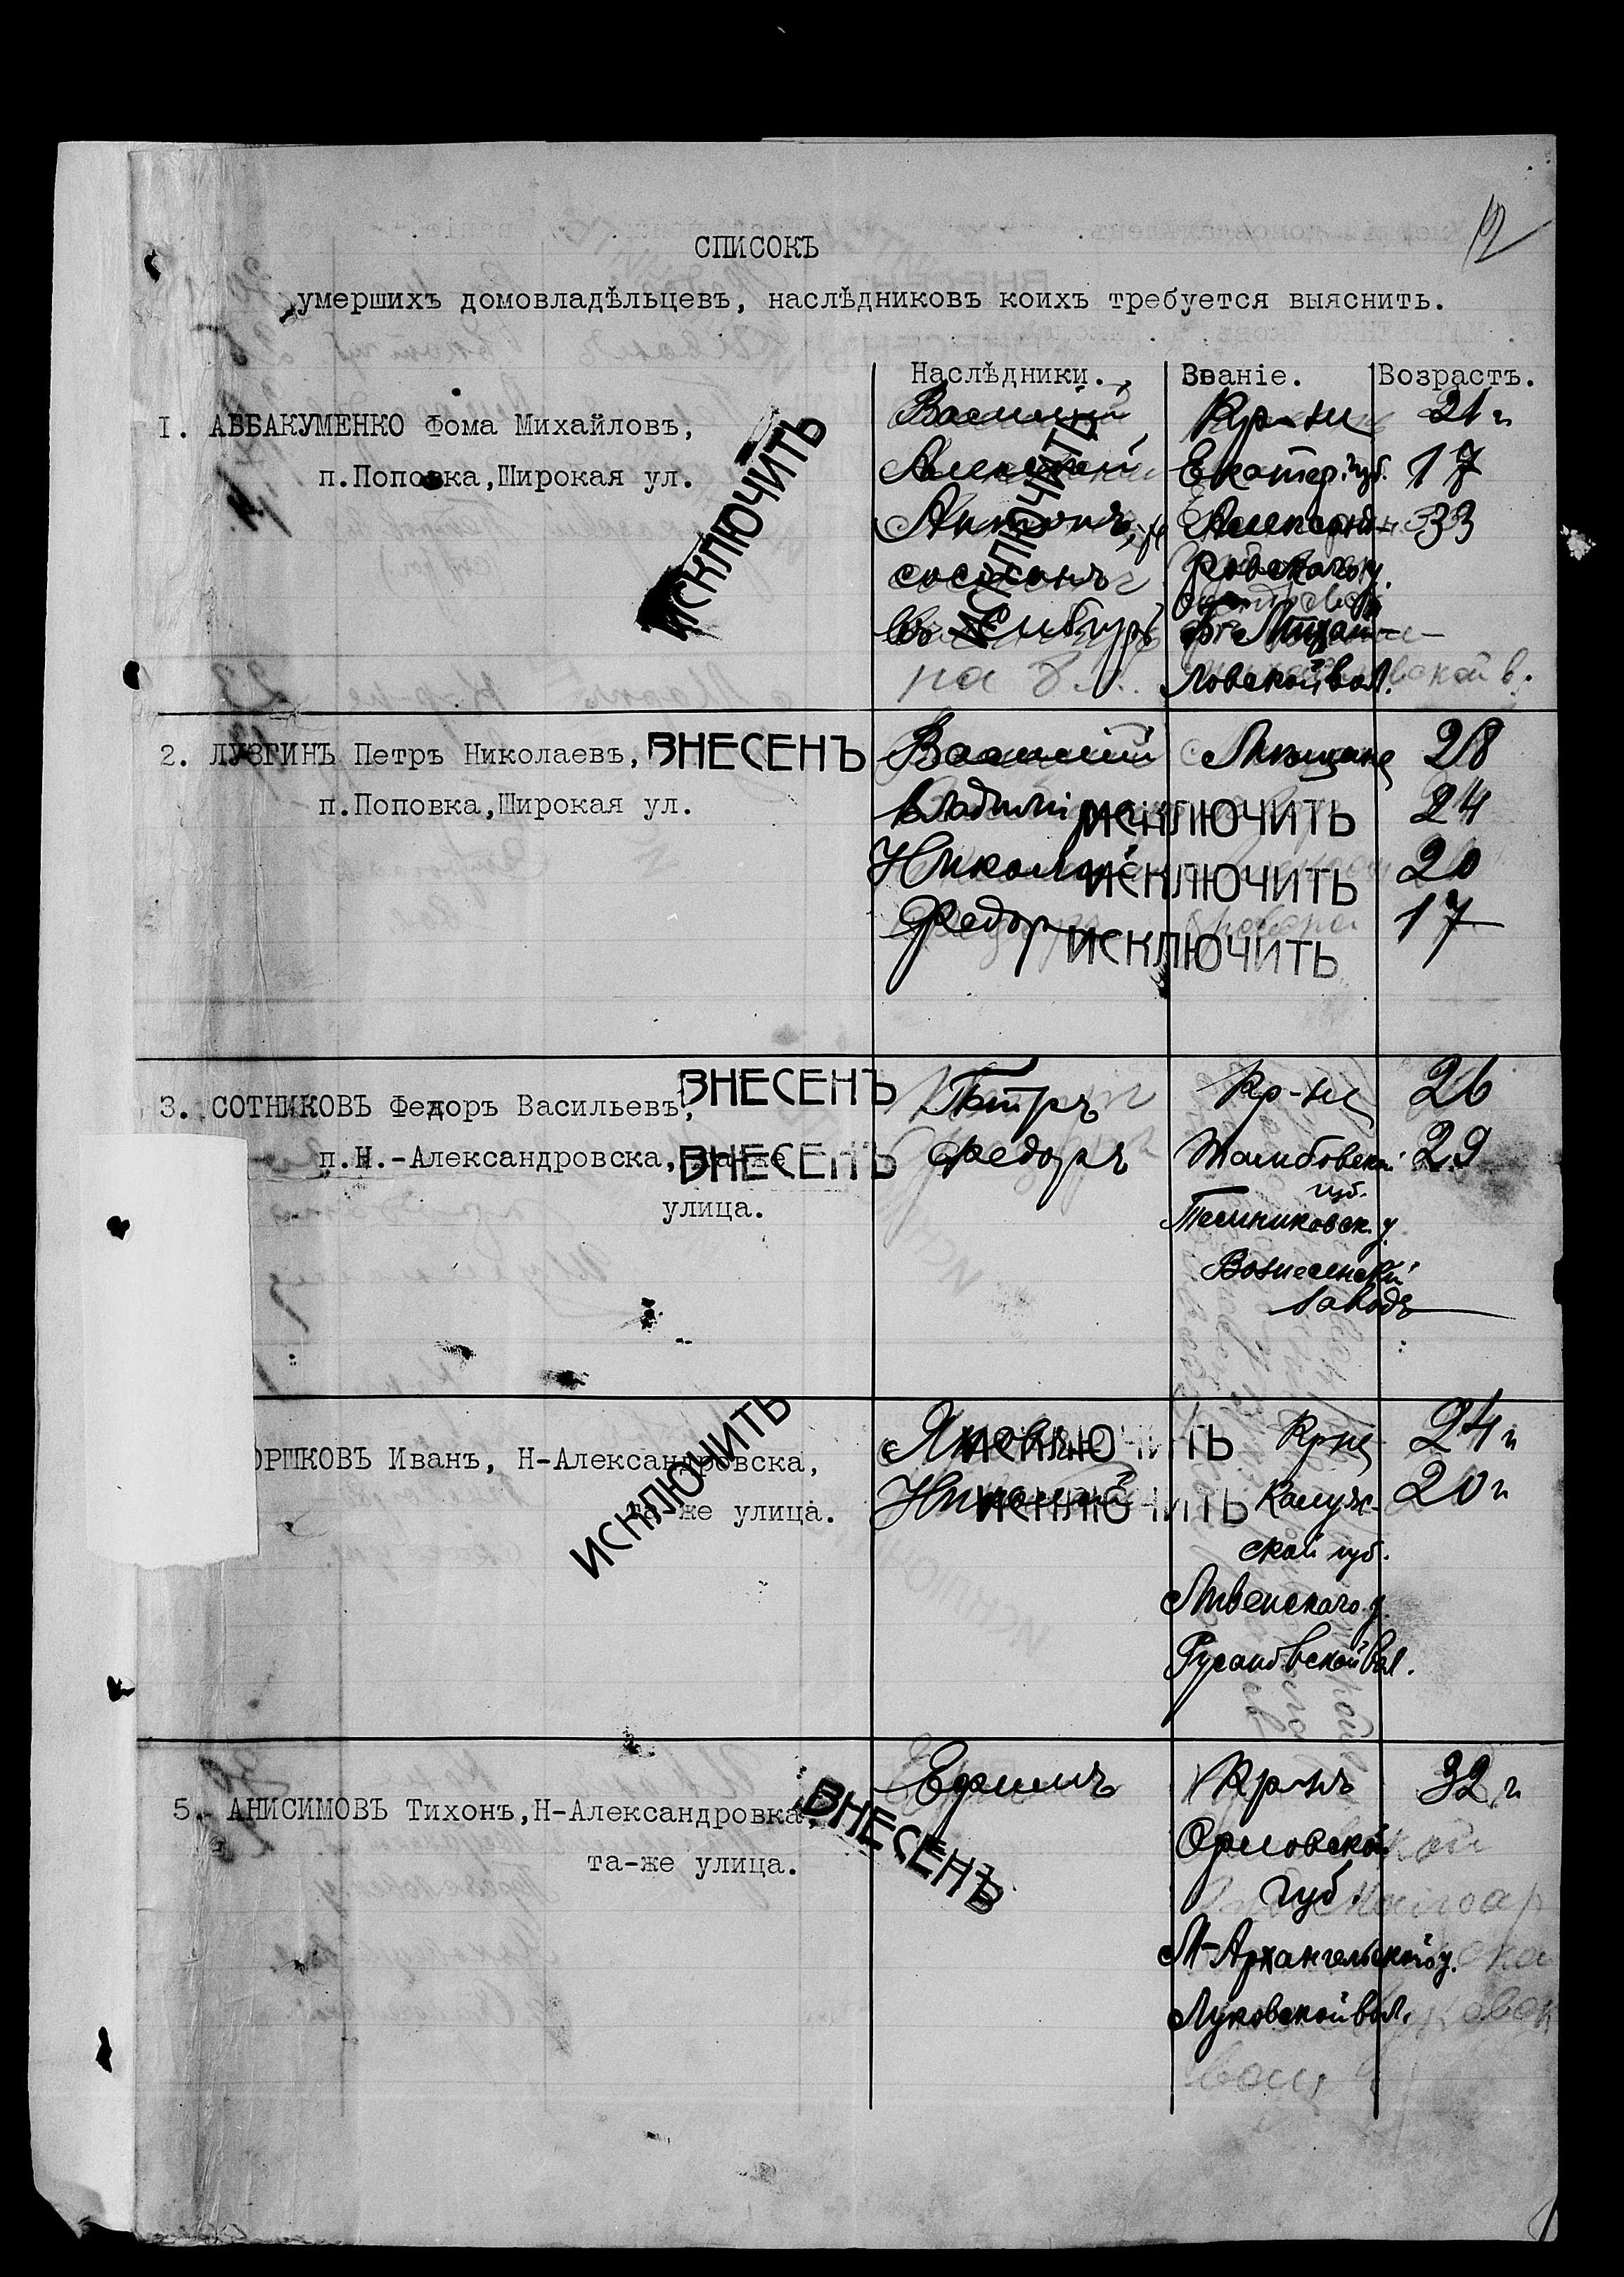 12
СПИСОКЪ
умершихъ домовладѣльцевъ, наслѣдниковъ коихъ требуется выяснить.
Наслѣдники. Званіе. Возрастъ.
I. АВБАКУМЕНКО Фома Михайловъ,
п.Поповка,Широкая ул.
ИСКЛЮЧИТЬ
ИСКЛЮЧИТЬ
Василій Кр-не 21 г
Алексѣй Екатер. губ. 17
Антонъ, 33
сосланъ
въ Сибирь
на
ловской вол.
2. ЛУЗГИНЪ Петръ Николаевъ, ВНЕСЕНЪ Василій Мѣщане 28
п.Поповка,Широкая ул. Владиміръ ИСКЛЮЧИТЬ 24
Николай ИСКЛЮЧИТЬ 20
Федоръ ИСКЛЮЧИТЬ 17
3. СОТНИКОВЪ Федоръ Васильевъ, ВНЕСЕНЪ Петръ Кр-не 26
п.Н.-Александровска, та-же ВНЕСЕНЪ Федоръ Тамбовской 29
губ.
улица. Темниковск. у.
Вознесенскій
заводъ
ОРШКОВЪ Иванъ, Н-Александровска, ИСКЛЮЧИТЬ Яковъ ИСКЛЮЧИТЬ Кр-не 24 г
та же улица. Николай ИСКЛЮЧИТЬ Калуж- 20 г
ской губ.
Русановской вол.
5. АНИСИМОВЪ Тихонъ,Н-Александровка, ВНЕСЕНЪ Ефимъ Кр-нъ 32 г
та-же улица. Орловской
губ.
М-Архангельской у.
Луковской вол.